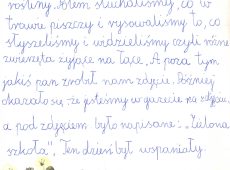 rośliny. Potem słuchaliśmy, co w
trawie piszczy i rysowaliśmy to, co
słyszeliśmy i widzieliśmy czyli różne
zwierzęta żyjące na łące. A poza tym
jakiś pan zrobił nam zdjęcie. Później
okazało się, że jesteśmy w gazecie na zdjęciu,
a pod zdjęciem było napisane: „Zielona
szkoła". Ten dzień był wspaniały.